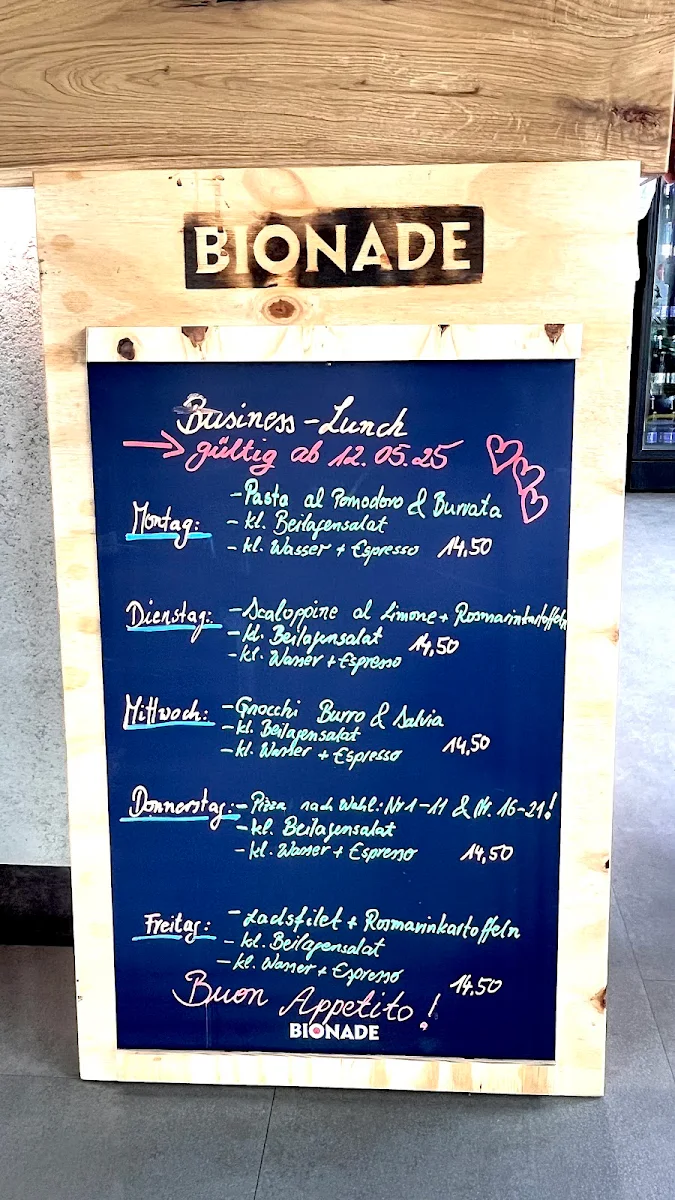 BIONADE
Business-Lunch
gültig ab 12.05.25
Montag: -Pasta al Pomodoro & Burrata
- kl. Beilagensalat
- kl. Wasser + Espresso 14,50
Dienstag: -Scaloppine al Limone + Rosmarinkartoffeln
-kl. Beilagensalat 14,50
-kl. Wasser + Espresso
Mittwoch: -Gnocchi Burro & Salvia
-kl. Beilagensalat
-kl. Wasser + Espresso 14,50
Donnerstag: - Pizza nach Wahl: Nr 1-11 & Nr. 16-21!
-kl. Beilagensalat
- kl. Wasser + Espresso 14,50
Freitag: - Lachsfilet + Rosmarinkartoffeln
- kl. Beilagensalat
- kl. Wasser + Espresso 14,50
Buon Appetito!
BIONADE